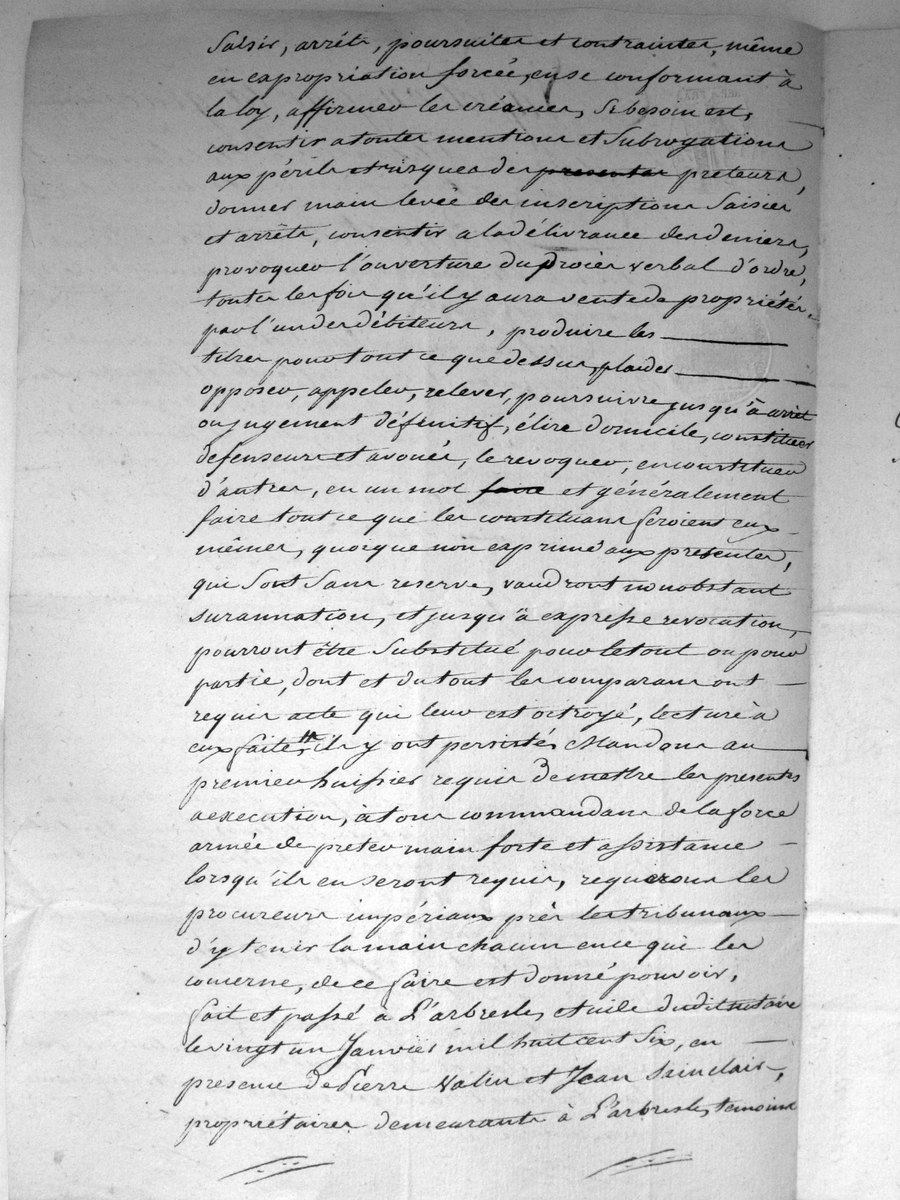 saisir, arrêts, poursuites et contraintes, même
en expropriation forcée, en se conformant à
la loy, affirmer les créances, si besoin est,
consentir a toutes mentions et subrogations
aux périls et risques des presentes preteurs,
donner main levée des inscriptions saisies
et arrêts, consentir a la délivrance des deniers,
provoquer l'ouverture du procès verbal d'ordre,
toutes les fois qu'il y aura vente de propriétés
par l'un des débiteurs, produire les
titres pour tout ce que dessus, plaider
opposer, appeler, relever, poursuivre jusqu'à arrêt
ou jugement définitif, élire domicile, constituer
defenseurs et avoués, le revoquer, en constituer
d'autres, en un mot faire et généralement
faire tout ce que les constituans feroient eux
mêmes, quoique non exprimé aux presentes,
qui sont sans reserve, vaudront nonobstant
surannation, et jusqu'à expresse revocation,
pourront être substitué pour le tout ou pour
partie, dont et du tout les comparans ont
requis acte qui leur est octroyé, lecture à
eux faite, ils y ont persistés Mandons au
premier huissier requis de mettre les presentes
a execution, à tous commandans de la force
armée de preter main forte et assistance
lorsqu'ils en seront requis, requerons les
procureurs impériaux près les tribunaux
d'y tenir la main chacun en ce qui les
concerne, de ce faire est donné pouvoir,
fait et passé à L'arbresle, etude dudit notaire
le vingt un Janvier mil huit cent six, en
presence de Pierre Valin et Jean Sainclair,
propriétaires demeurants à L'arbresle, temoins